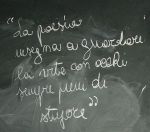 "La poesia
insegna a guardare
la vita con occhi
sempre pieni di
stupore"